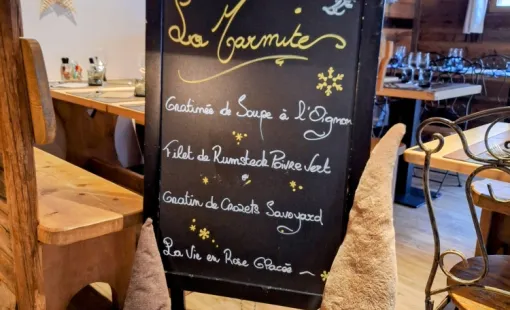 La Marmite
Gratinée de Soupe à l'Oignon
Filet de Rumsteck Poivre Vert
Gratin de Crozets Savoyard
La Vie en Rose Glacée